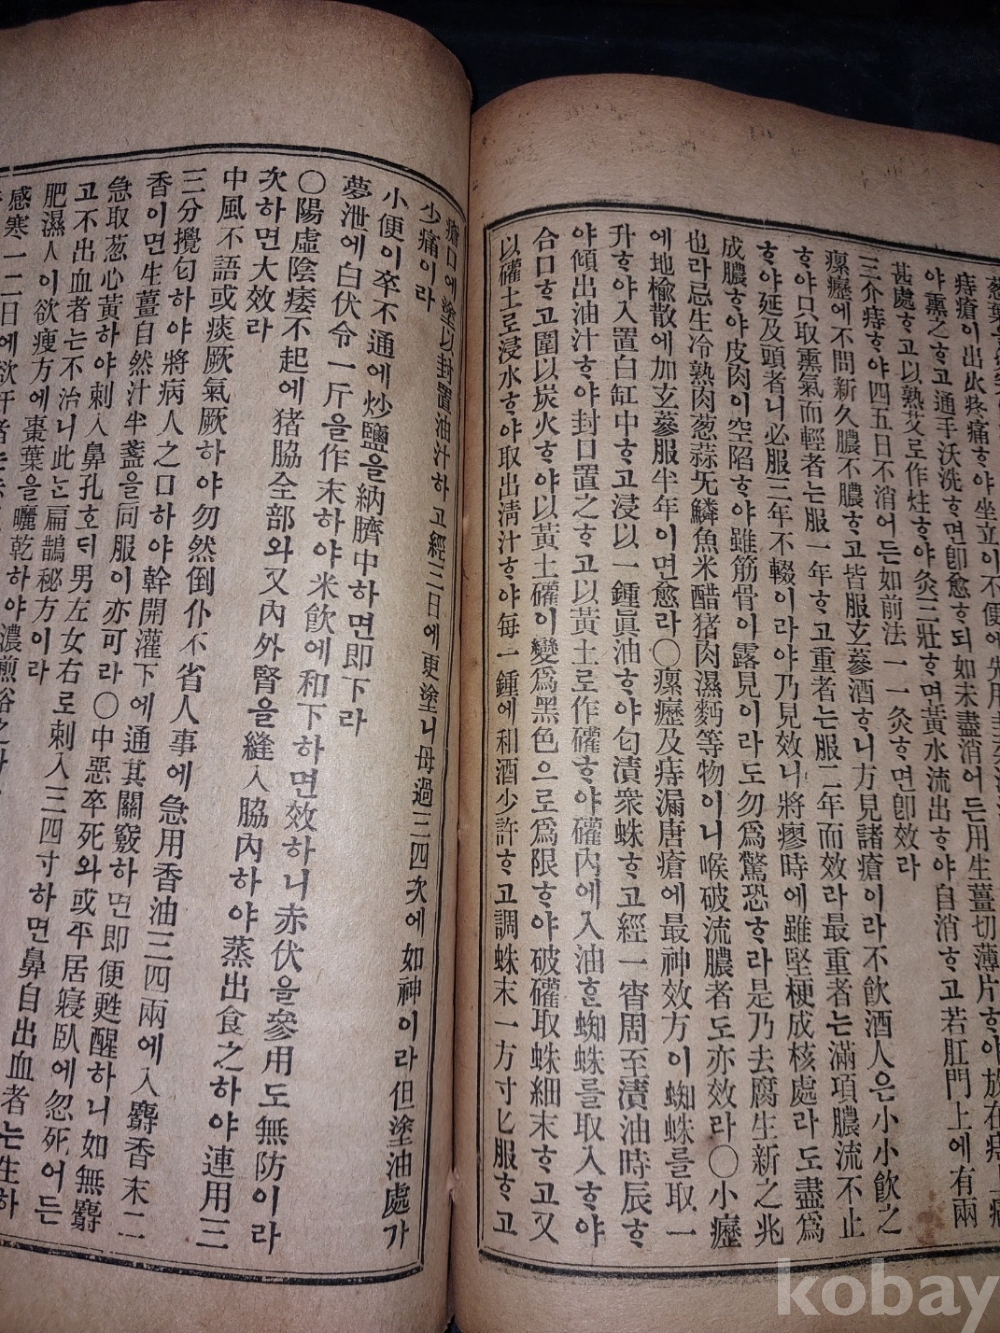 痔瘡이出䏚疼痛ᄒᆞ야坐立이不便에先用
야熏之ᄒᆞ고通手沃洗ᄒᆞ면卽愈ᄒᆞ되如未盡消어든用生薑切薄片ᄒᆞ야放在痔
甚處ᄒᆞ고以熟艾로作炷ᄒᆞ야灸三壯ᄒᆞ면黃水流出ᄒᆞ야自消ᄒᆞ고若肛門上에有兩
三介痔ᄒᆞ야四五日不消어든如前法一一灸ᄒᆞ면卽效라
瘰癧에不問新久膿不膿ᄒᆞ고皆服玄蔘酒ᄒᆞ니方見諸瘡이라不飮酒人은小小飮之
ᄒᆞ야只取熏氣而輕者는服一年ᄒᆞ고重者는服二年而效라最重者는滿項膿流不止
ᄒᆞ야延及頭者니必服三年不輟이라야乃見效니將瘳時에雖堅梗成核處라도盡爲
成膿ᄒᆞ야皮肉이空陷ᄒᆞ야雖筋骨이露見이라도勿爲驚恐ᄒᆞ라是乃去腐生新之兆
也라忌生冷熟肉葱蒜旡鱗魚米醋猪肉濕麪等物이니喉破流膿者도亦效라〇小癧
에地楡散에加玄蔘服半年이면愈라〇瘰癧及痔漏唐瘡에最神效方이蜘蛛를取一
升ᄒᆞ야入置白缸中ᄒᆞ고浸以一鍾眞油ᄒᆞ야匀漬衆蛛ᄒᆞ고經一宵周至漬油時辰ᄒᆞ
야傾出油汁ᄒᆞ야封口置之ᄒᆞ고以黃土로作礶ᄒᆞ야礶內에入油ᄒᆞᆫ蜘蛛를取入ᄒᆞ야
合口ᄒᆞ고圍以炭火ᄒᆞ야以黃土礶이變爲黑色으로爲限ᄒᆞ야破礶取蛛細末ᄒᆞ고又
以礶土로浸水ᄒᆞ야取出淸汁ᄒᆞ야每一鍾에和酒少許ᄒᆞ고調蛛末一方寸匕服ᄒᆞ고
瘡口에塗以封置油汁하고經三日에更塗니毋過三四次에如神이라但塗油處가
少痛이라
小便이卒不通에炒鹽을納臍中하면即下라
夢泄에白伏令一斤을作末하야米飮에和下하면效하니赤伏을參用도無防이라
〇陽虛陰痿不起에猪脇全部와又內外腎을縫入脇內하야蒸出食之하야連用三
次하면大效라
中風不語或痰厥氣厥하야勿然倒仆不省人事에急用香油三四兩에入麝香末二
三分攪匀하야將病人之口하야幹開灌下에通其關竅하면即便甦醒하니如無麝
香이면生薑自然汁半盞을同服이亦可라〇中惡卒死와或平居寢臥에忽死어든
急取葱心黃하야刺入鼻孔호되男左女右로刺入三四寸하면鼻自出血者는生하
고不出血者는不治니此는扁鵲秘方이라
肥濕人이欲瘦方에棗葉을曬乾하야濃煎浴之
感寒一二日에欲汗者는